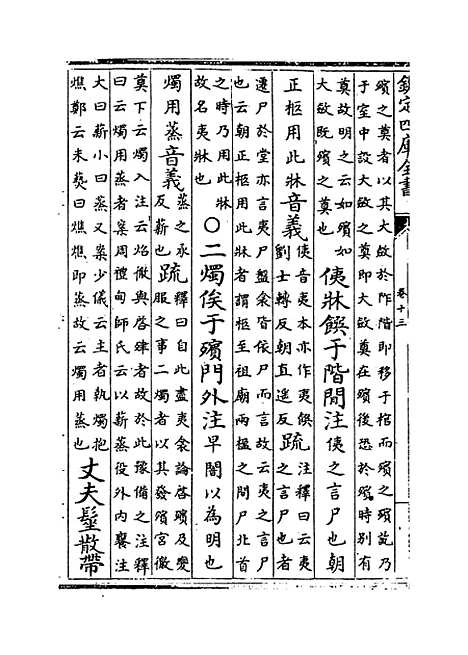 欽定四庫全書
卷十三
殯之奠者以其大斂於阼階即移于棺而殯之殯訖乃
于室中設大斂之奠即大斂奠在殯後恐於殯時別有
奠故明之云如殯如
大斂既殯之奠也
侇牀饌于階間注侇之言尸也朝
正柩用此牀音義
侇音夷本亦作夷饌
劉士轉反朝直遥反
疏
注釋曰云夷
之言尸也者
遷尸於堂亦言夷尸盤衾皆依尸而言故云夷之言尸
也云朝正柩用此牀者謂柩至祖廟兩楹之間尸北首
之時乃用此牀
故名夷牀也
○二燭俟于殯門外注早闇以為明也
燭用蒸音義
蒸之承
反薪也
疏
釋曰自此盡夷衾論啓殯及變
服之事二燭者以其發殯宮徹
莫下云燭入注云炤徹與啓肂者故於此豫備之注釋
曰云燭用蒸者案周禮甸師氏云以薪蒸役外内饔注
大曰薪小曰蒸又案少儀云主者執燭抱
燋鄭云未爇曰燋燋即蒸故云燭用蒸也
丈夫髽散帶